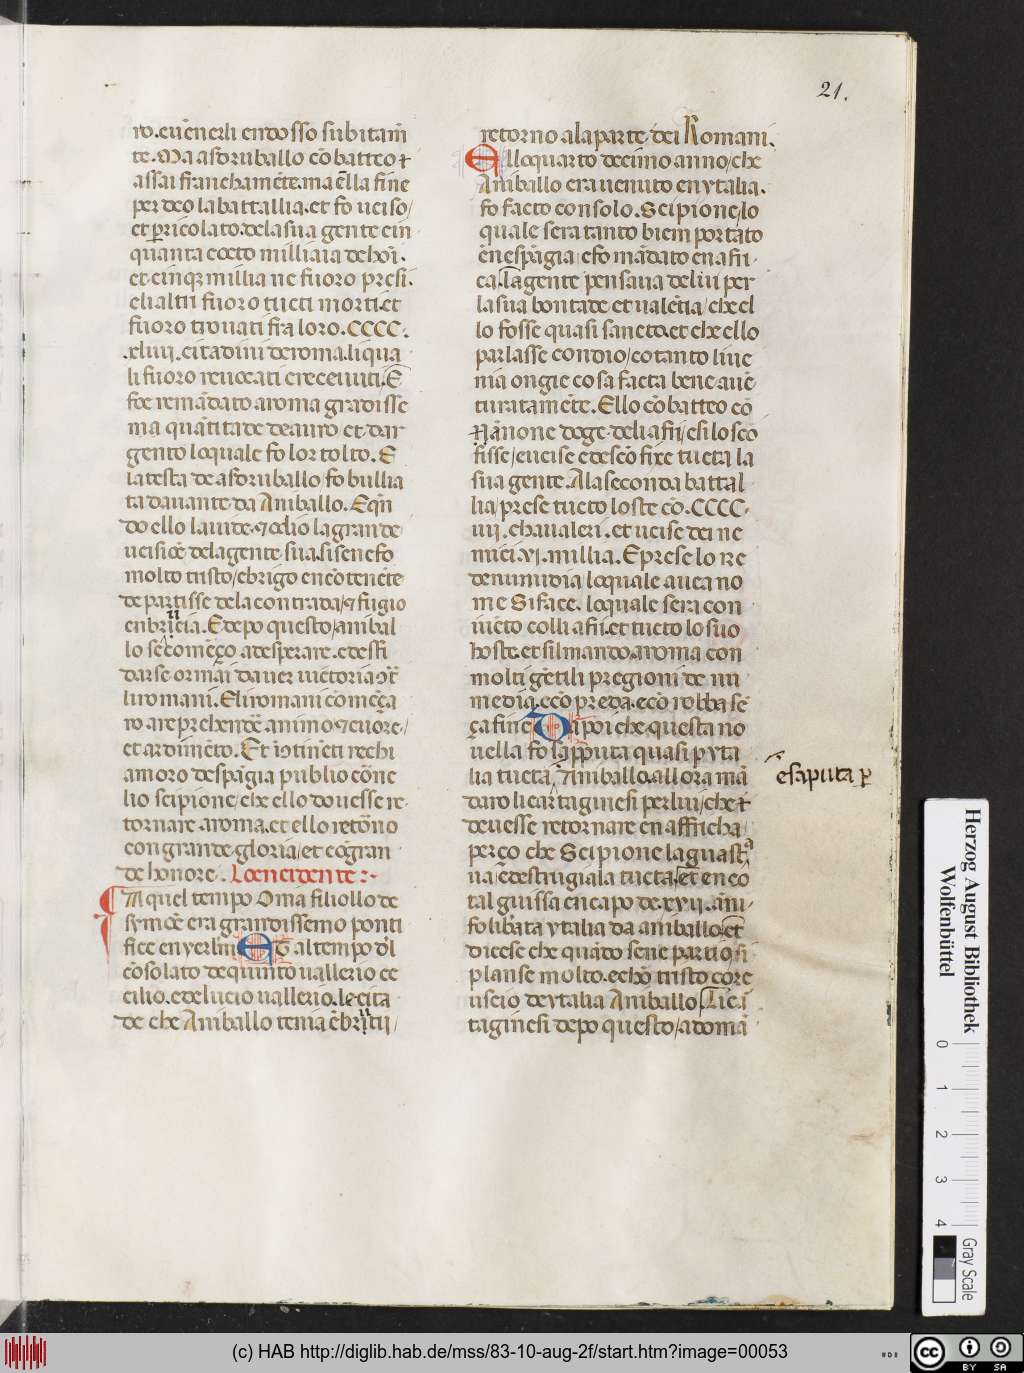 21.
ro. euēnerli endosso subitam̄
te. Ma asdruballo cōbatteo ⁊
assai franchamēte. ma ēlla fine
perdeo la battallia. et fo uciso/
et ꝑricolato. de la sua gente cin
quanta eocto milliaia de hoī.
et cinqꝫ millia ne fuoro presi.
eli altri fuoro tucti morti. et
fuoro trouati fra loro. CCCC.
.xliiij. citadini de roma. li qua
li fuoro reuocati e receiuiti. E
foe remādato aroma grādisse
ma quātitade de auro et dar
gento loquale fo lor tolto. E
la testa de asdruballo / fo bullia
ta dauante da Aniballo. E qn̄
do ello la uide. ⁊ odio la grande
ucisiōe dela gente sua. si sen e fo
molto tristo / ebrigo encōtenēte
de partisse de la contrada / ⁊ fugio
en brucia. E depo questo / anibal
lo se comēço adesperare. e desfi
darse ormai dauer uictoria ɔtᷓ
li romani. E li romani comēça
ro are prehendē animo ⁊ cuore /
et ardimēto. Et ī ɔtinēti rechi
amoro de spāgia publio cōne
lio scipione / che ello douesse re
tornare aroma. et ello retōno
con grande gloria / et cōgran
de honore. Lo encidente :-
A quel tempo Oma filiollo de
symōe era grandissemo ponti
fice en yerl̄m ET al tempo dl̄
cōsolato de quinto uallerio ce
cilio. e de lucio uallerio. le cita
de che Aniballo tenia ē brutij /
retorno ala parte dei Romani.
Ello quarto decimo anno / che
Aniballo era uenuto en ytalia.
fo facto consolo. Scipione / lo
quale sera tanto biem portato
ēn espāgia / e fo mādato en afri
ca. la gente pensaua de lui per
la sua bontade et ualētia / che el
lo fosse quasi sancto. et che ello
parlasse con dio / co tanto li ue
nia ongie cosa facta bene auē
turatamēte. Ello cōbatteo cō
Hānone doge deli afri / e si lo scō
fisse / e ucise e descōfixe tucta la
sua gente. Ala seconda battal
lia / prese tucto loste cō. CCCC.
iiij. chaualeri. et ucise dei ne
mici. xi. millia. E prese lo re
de numidia / lo quale auea no
me Siface. lo quale sera con
uēto colli afri. et tucto lo suo
hoste. et si l mando aroma con
molti gētili pregioni de nu
media. ecō preda. ecō robba sē
ça fine Da poi che questa no
uella fo saꝑputa quasi ꝑ yta
lia tucta, Aniballo. allora mā
daro li cartaginesi per lui / che ⁊
deuesse retornare en affricha /
per ço che Scipione la guasta
ua ē destrugia la tucta. et en cō
tal guissa en capo de. xvij. āni
fo libᷓata ytalia da aniballo. et
dicese che quādo sene partio, si
planse molto. echō tristo core
uscio de ytalia Aniballo
taginesi depo questo / adomā
e saputa ꝑ
Herzog August Bibliothek
Wolfenbüttel
0 1 2 3 4
Gray Scale
(c) HAB http://diglib.hab.de/mss/83-10-aug-2f/start.htm?image=00053
cc BY SA